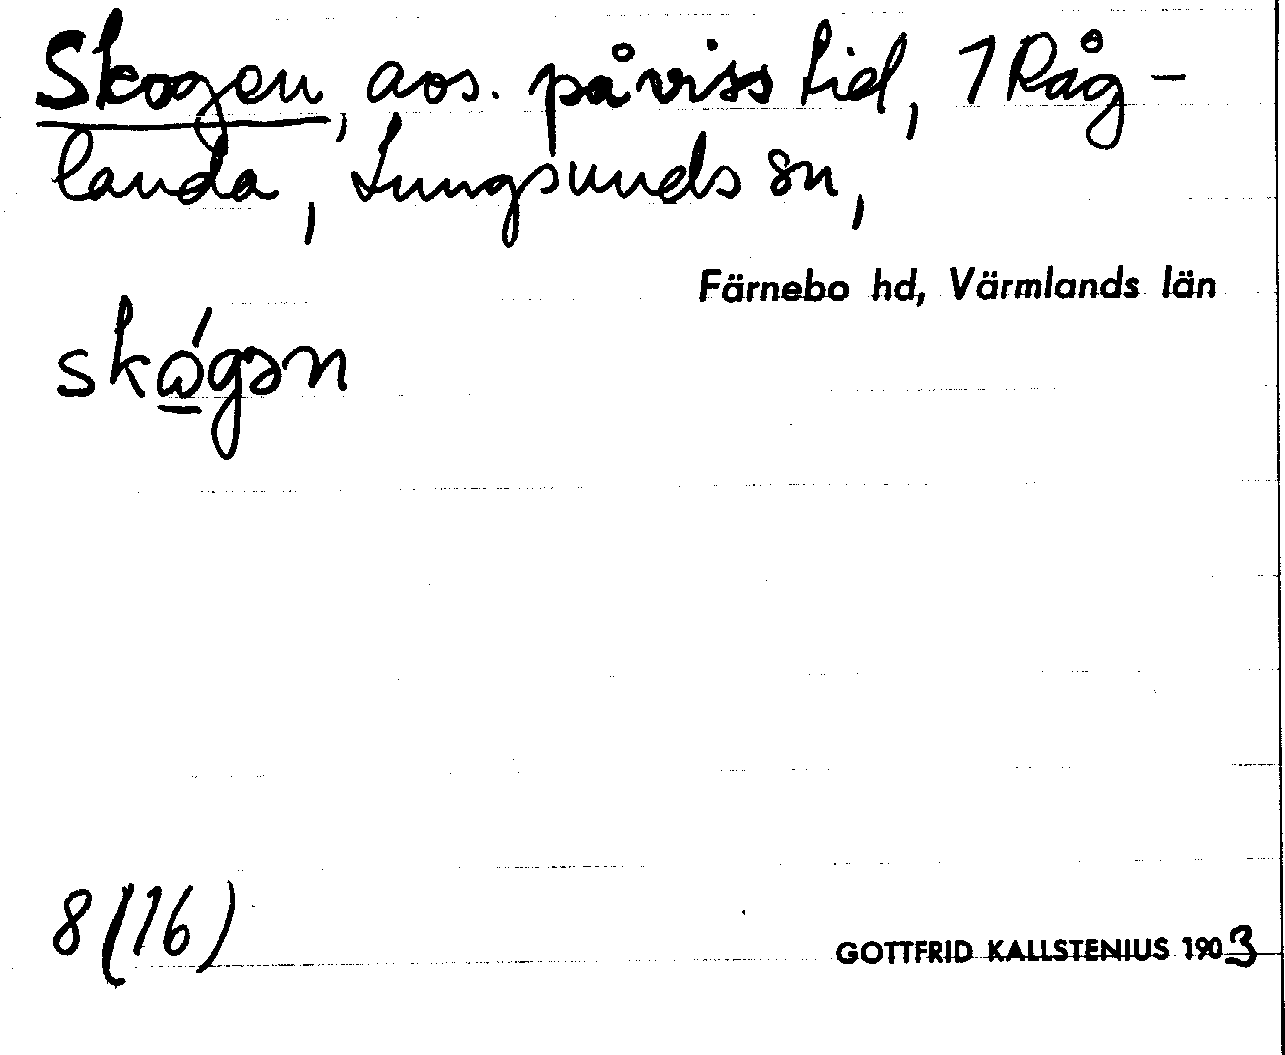 Skogen, aos. på viss tid, 1 Råg-
landa, Lungsunds sn,
Färnebo hd, Värmlands län
skó̱gən
8 (16)
GOTTFRID KALLSTENIUS 1903